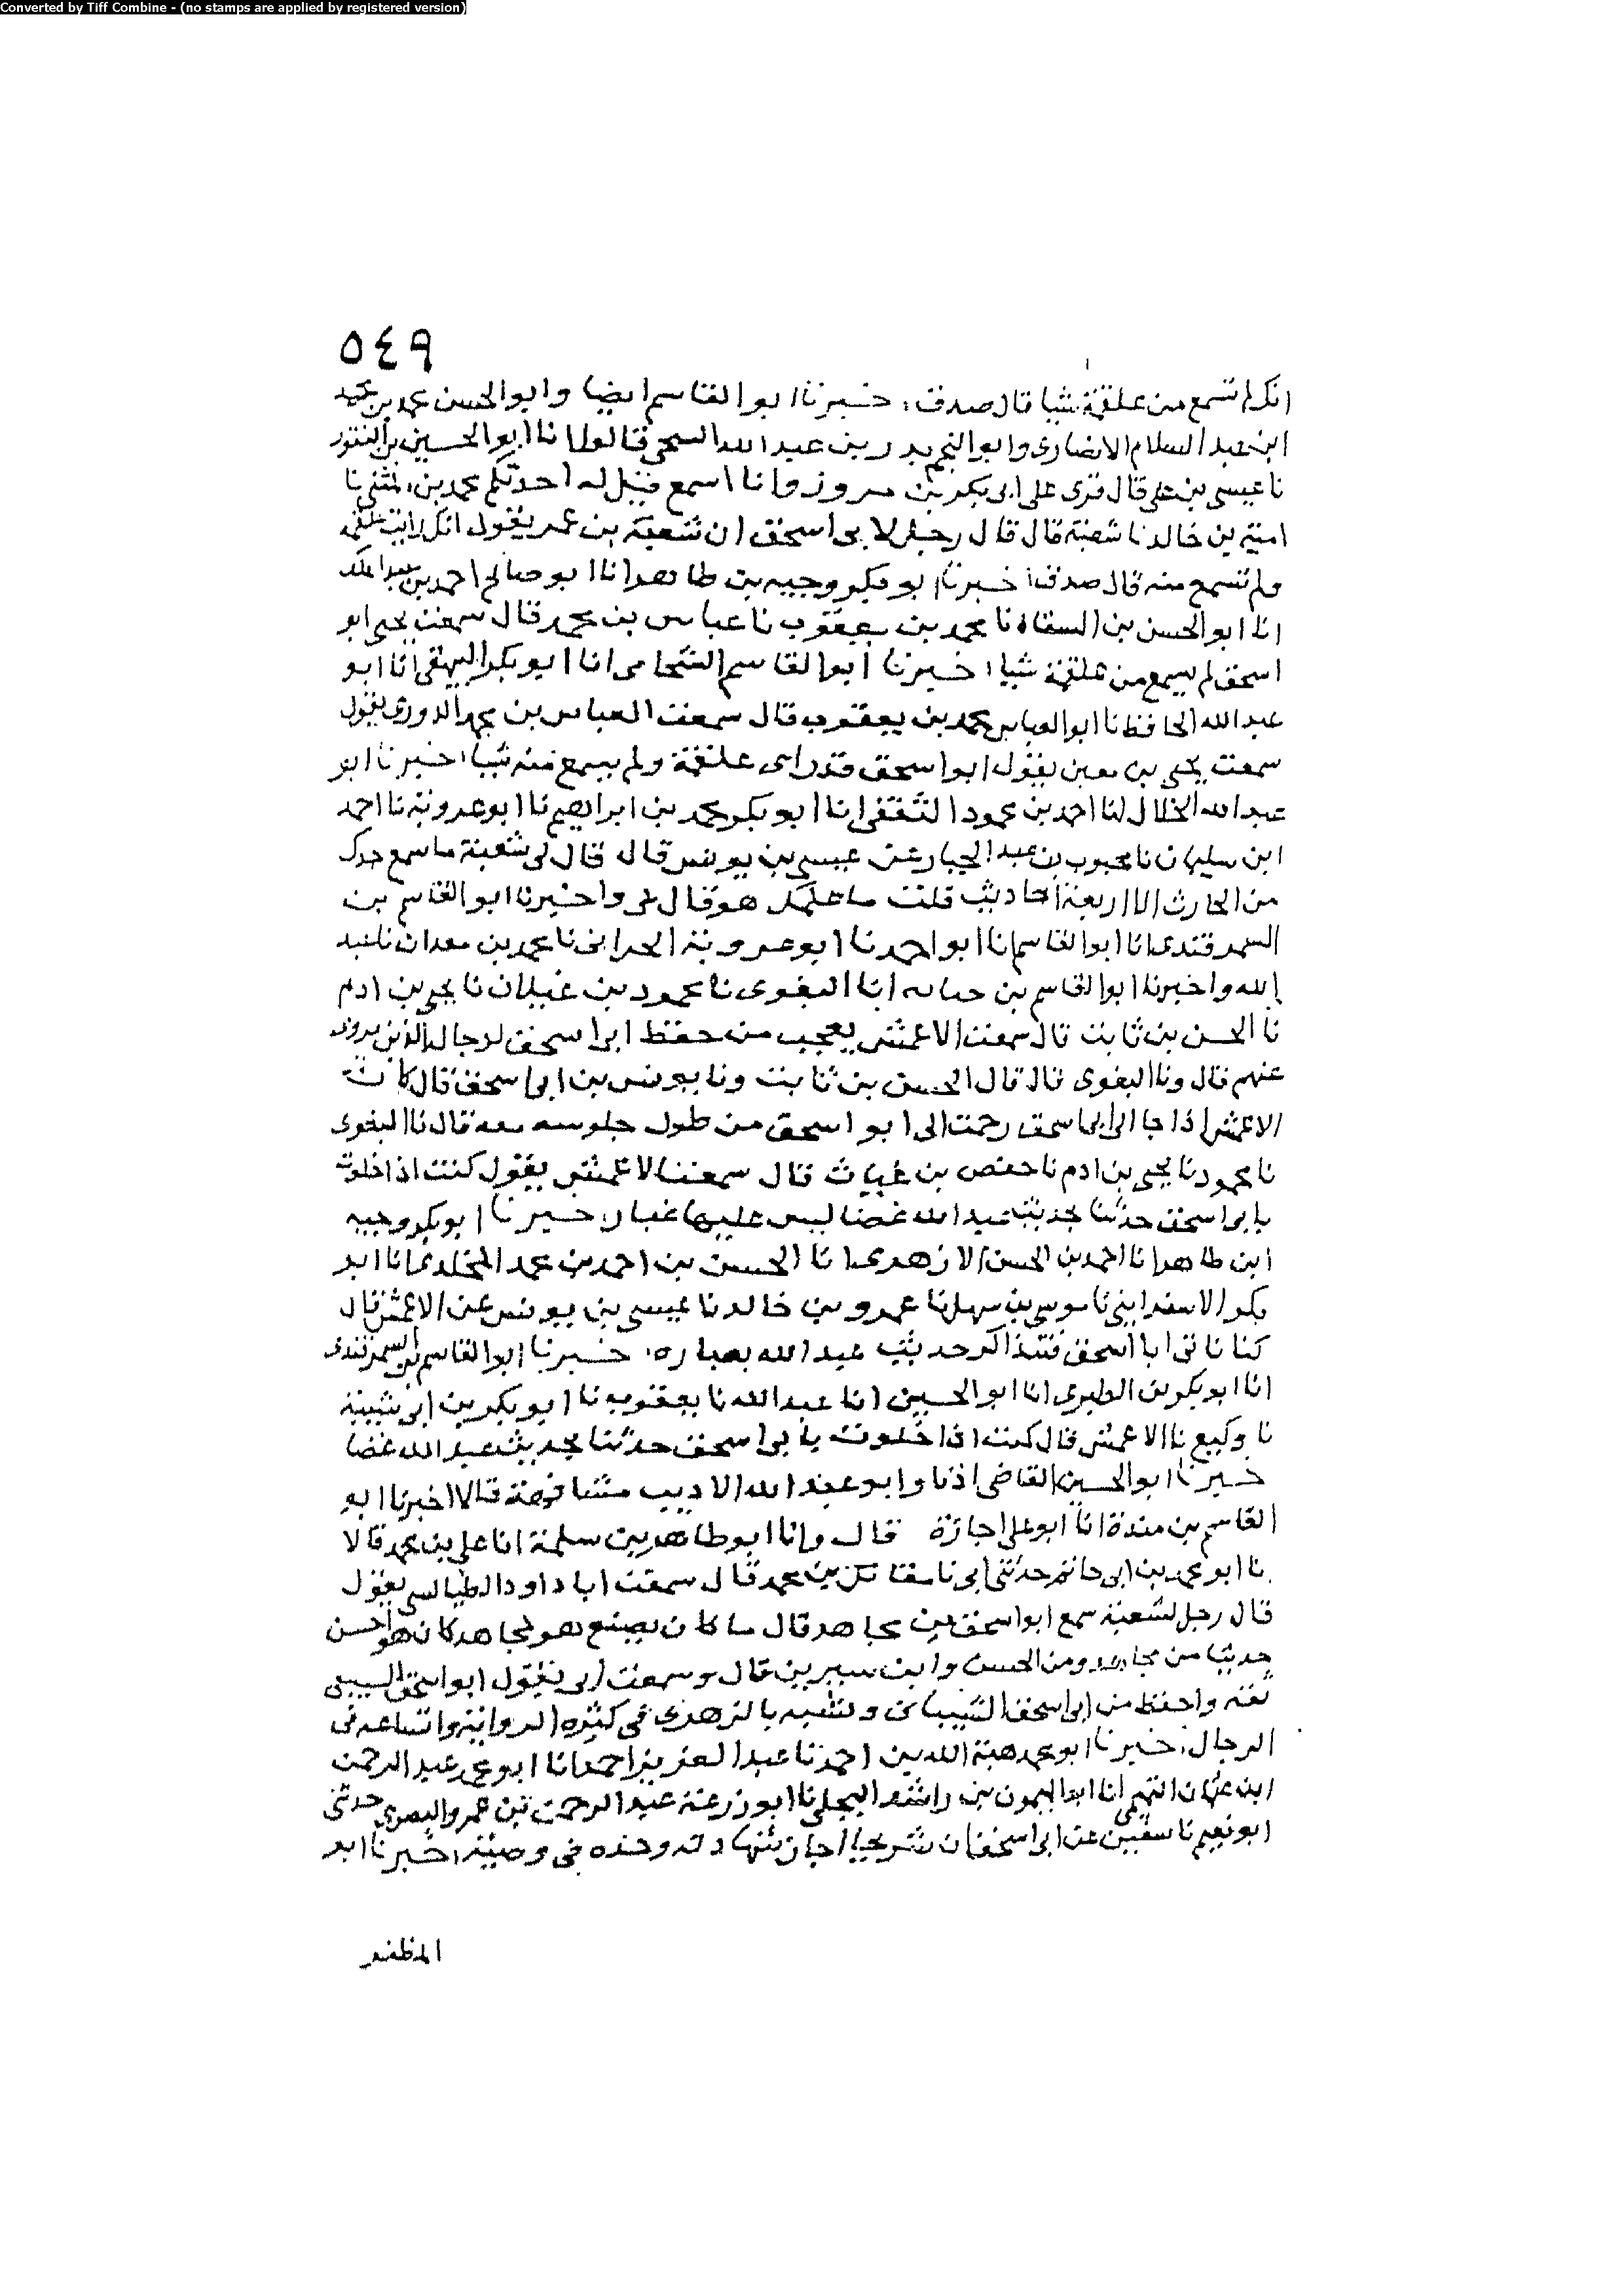 Converted by Tiff Combine - (no stamps are applied by registered version)
٥٤٩
انك لم تسمع من علقمة شيا قال صدق اخبرنا ابو القاسم ايضا وابو الحسن محمد بن محمد
ابن عبد السلام الانصارى وابو النجم بدر بن عبد الله السحى قالوا انا ابو الحسين بن النقور
نا عيسى بن على قال قرى على ابى بكر بن وانا اسمع قيل له احدثكم محمد بن المثنى نا
امية بن خالد نا شعبة قال قال رجل لابى اسحق ان شعبة بن عمر يقول انك رايت علقمة
ولم تسمع منه قال صدق اخبرنا ابو بكر وجيه بن طاهر انا ابو صالح احمد بن عبد الملك
انا ابو الحسن بن السقاء نا محمد بن يعقوب نا عباس بن محمد قال سمعت يحيى ابو
اسحق لم يسمع من علقمة شيا اخبرنا ابو القاسم الشحامى انا ابو بكر البيهقى انا ابو
عبد الله الحافظ نا ابو العباس محمد بن يعقوب قال سمعت العباس بن محمد الدورى يقول
سمعت يحيى بن معين يقول ابو اسحق قد راى علقمة ولم يسمع منه شيا اخبرنا ابو
عبد الله الخلال لنا احمد بن محمود الثقفى انا ابو بكر محمد بن ابراهيم نا ابو عروبة نا احمد
ابن سليمان نا محبوب بن عبد الجبار عن عيسى بن يونس قال قال لى شعبة ما سمع جدك
من الحارث الا اربعة احاديث قلت ما علمك هو قال لى واخبرنا ابو القاسم بن
السمرقندى انا ابو القاسم انا ابو احمد نا ابو عروبة الحرانى نا محمد بن معدان نا عبد
الله واخبرنا ابو القاسم بن حبابه انا البغوى نا محمود بن غيلان نا يحيى بن ادم
نا الحسن بن ثابت قال سمعت الاعمش يعجب من حفظ ابو اسحق لرجاله الذين يروى
عنهم قال ونا البغوى قال قال الحسن بن ثابت ونا يونس بن ابى اسحق قال كانت
الاعمش اذا جا الى ابى اسحق رحمت الى ابو اسحق من طول جلوسه معه قال نا البغوى
نا محمود نا يحيى بن ادم نا حفص بن غياث قال سمعت الاعمش يقول كنت اذا خلوت
بابى اسحق حدثنا بحديث عبد الله غضا ليس عليها غبار اخبرنا ابو بكر وجيه
ابن طاهر انا احمد بن الحسن الازهرى انا الحسن بن احمد بن محمد المخلدى انا ابو
بكر الاسفراينى نا موسى بن سهل نا عمرو بن خالد نا عيسى بن يونس عن الاعمش قال
كنا ناتى ابا اسحق فنتذاكر حديث عبد الله بعباره اخبرنا ابو القاسم بن السمرقندى
انا ابو بكر بن الطبرى انا ابو الحسين انا عبد الله نا يعقوب نا ابو بكر بن ابى شيبة
نا وكيع نا الاعمش قال كنت اذا خلوت بابى اسحق حدثنا بحديث عبد الله غضا
اخبرنا ابو الحسين القاضى اذنا وابو عبد الله الاديب مشافهة قالا اخبرنا ابو
القاسم بن مندة انا ابو على اجازة قال وانا ابو طاهر بن سلمة انا على بن محمد قالا
نا ابو محمد بن ابى حاتم حدثنى ابى نا بن محمد قال سمعت ابا داود الطيالسى يقول
قال رجل لشعبة سمع ابو اسحق من مجاهد قال ما كان يصنع هو لمجاهد كان هو احسن
حديثا من مجاهد ومن الحسن وابن سيرين قال وسمعت ابى يقول ابو اسحق السبيعى
ثقة واحفظ من ابى اسحق الشيبانى وتشبه بالزهرى فى كثرة الرواية واتساعه فى
الرجال اخبرنا ابو محمد هبة الله بن احمد نا عبد العزيز احمد انا ابو محمد عبد الرحمن
ابن عثمان التميمى انا ابو الميمون بن راشد البجلى نا ابو زرعة عبد الرحمن بن عمرو البصرى حدثنى
ابو نعيم نا سفيان عن ابى اسحق ان شريحا اجاز شهادته وحده فى وصية اخبرنا ابو
المظفر